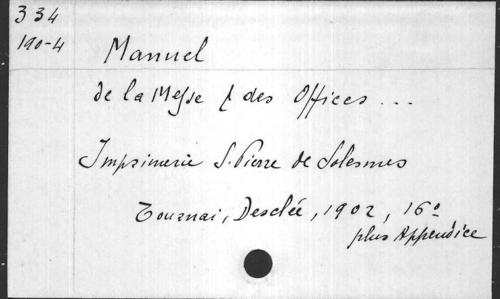 334
190-4
Manuel
de la Messe & des Offices ...
Imprimerie S. Pierre de Solesmes
Tournai, Desclée, 1902, 16º
plus Appendice